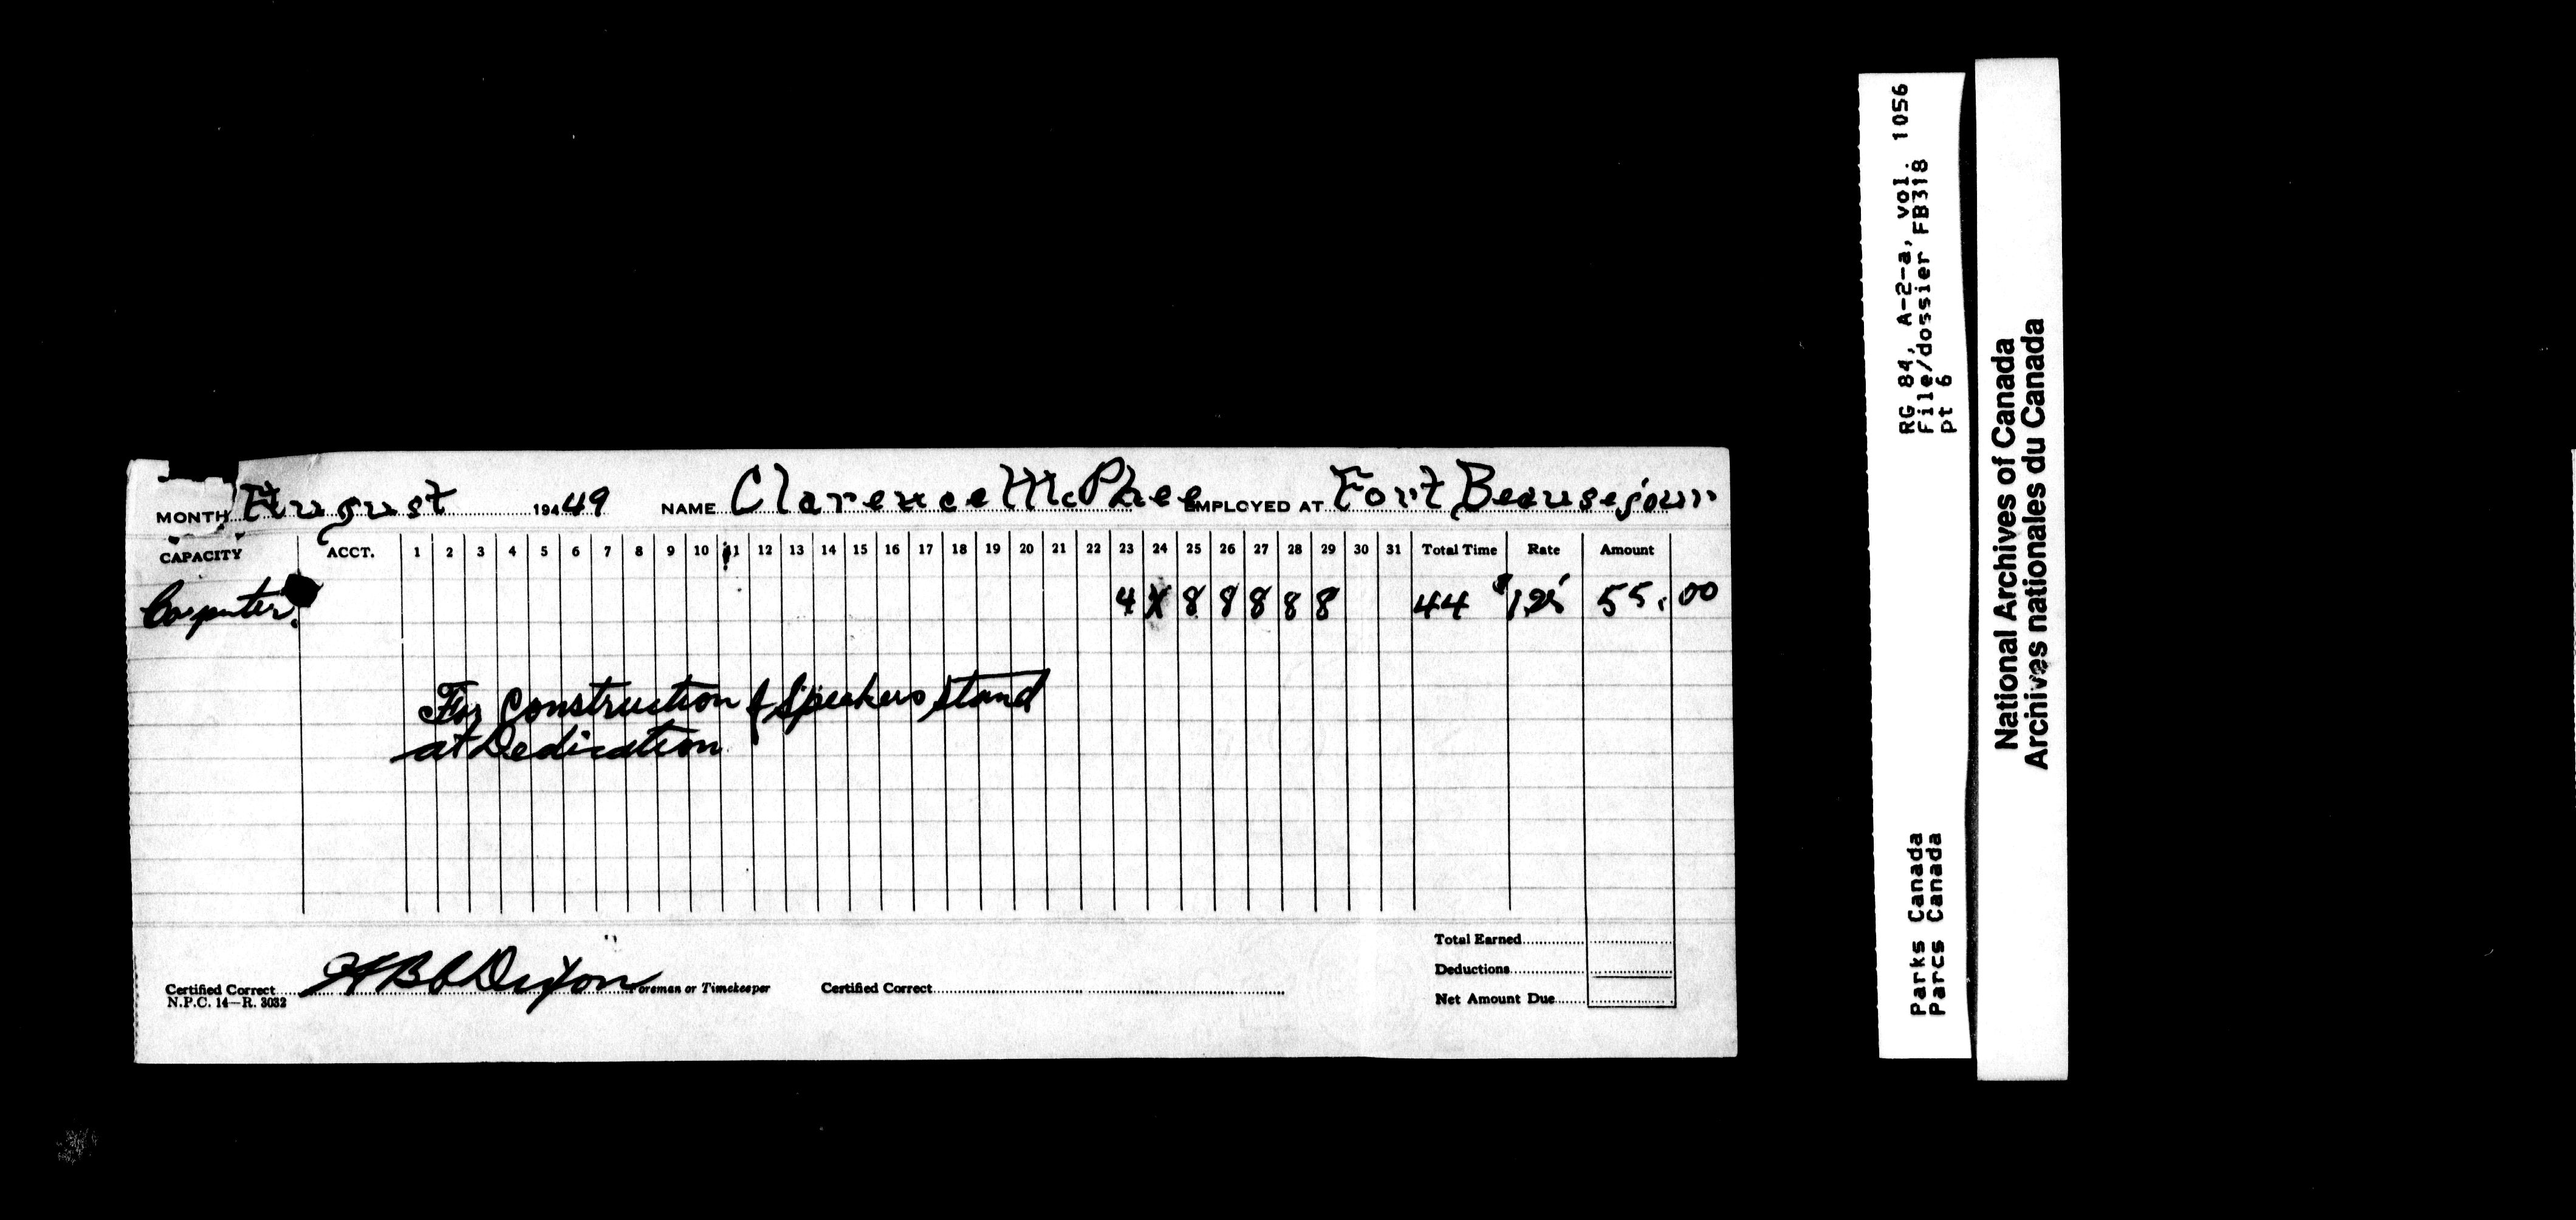 MONTH August 19449 NAME Clarence McPhee EMPLOYED AT Fort Beausejour
CAPACITY ACCT. 1 2 3 4 5 6 7 8 9 10 11 12 13 14 15 16 17 18 19 20 21 22 23 24 25 26 27 28 29 30 31 Total Time Rate Amount
Carpenter. 4 X 8 8 8 8 8 44 $1.25 55.00
For Construction of Speakers stand
at Dedication
Total Earned
Deductions
Certified Correct H B C Dixon Foreman or Timekeeper Certified Correct Net Amount Due
N.P.C. 14—R. 3032
RG 84, A-2-a, vol. 1056
File/dossier FB318
pt 6
Parks Canada
Parcs Canada
National Archives of Canada
Archives nationales du Canada